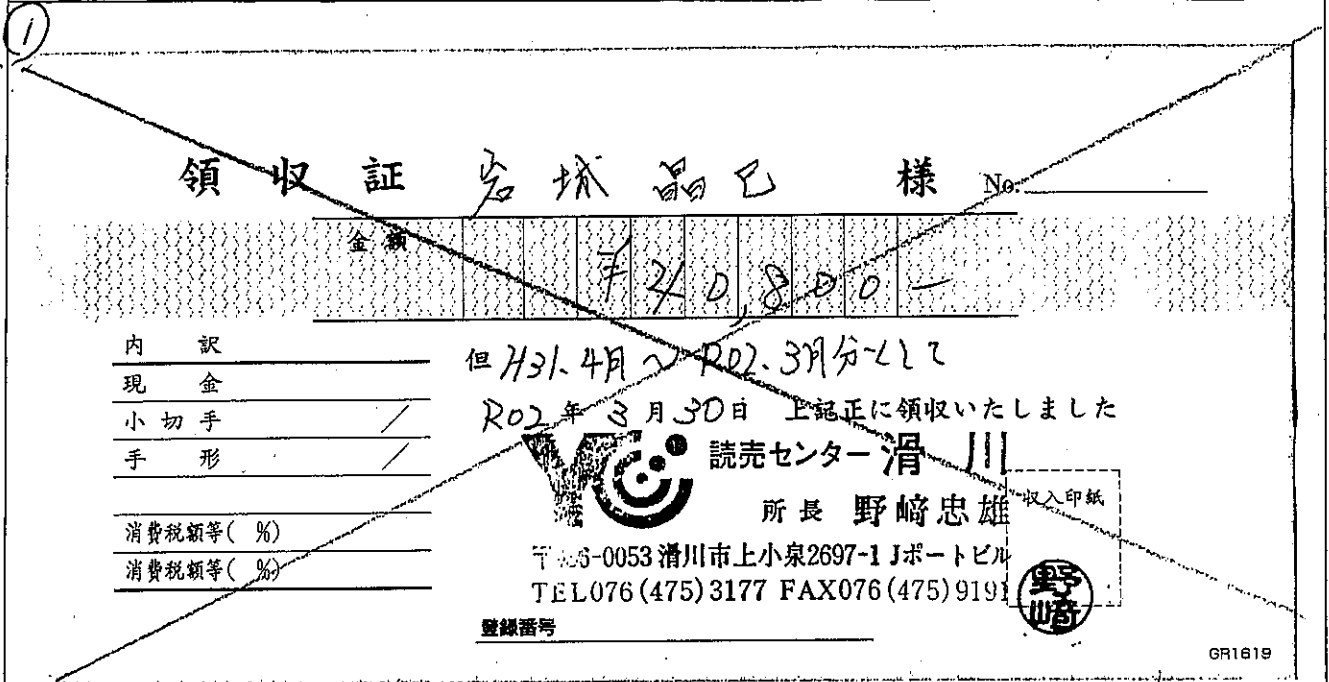 ①
領収証 岩城晶巳 様 No.
金額 ¥40,800-
内訳
現金
小切手 /
手形 /
消費税額等( %)
消費税額等( %)
但 H31.4月〜R02.3月分として
R02年3月30日 上記正に領収いたしました
YC 読売センター滑川
所長 野﨑忠雄
収入印紙
6-0053 滑川市上小泉2697-1 Jポートビル
TEL076(475)3177 FAX076(475)9191
野﨑
登録番号
GR1619